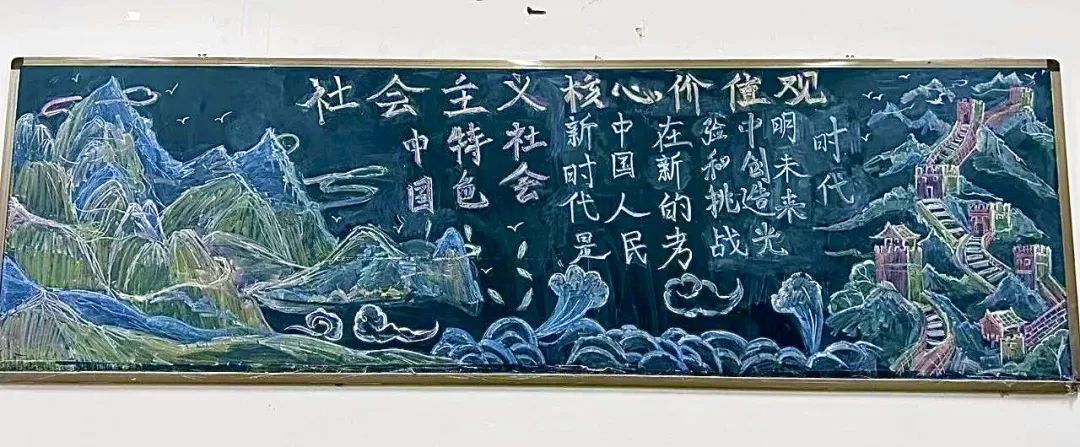 社会主义核心价值观
中国
特色
社会
新时代是
中国人民
在新的考
验和挑战
中创造光
明未来
时代